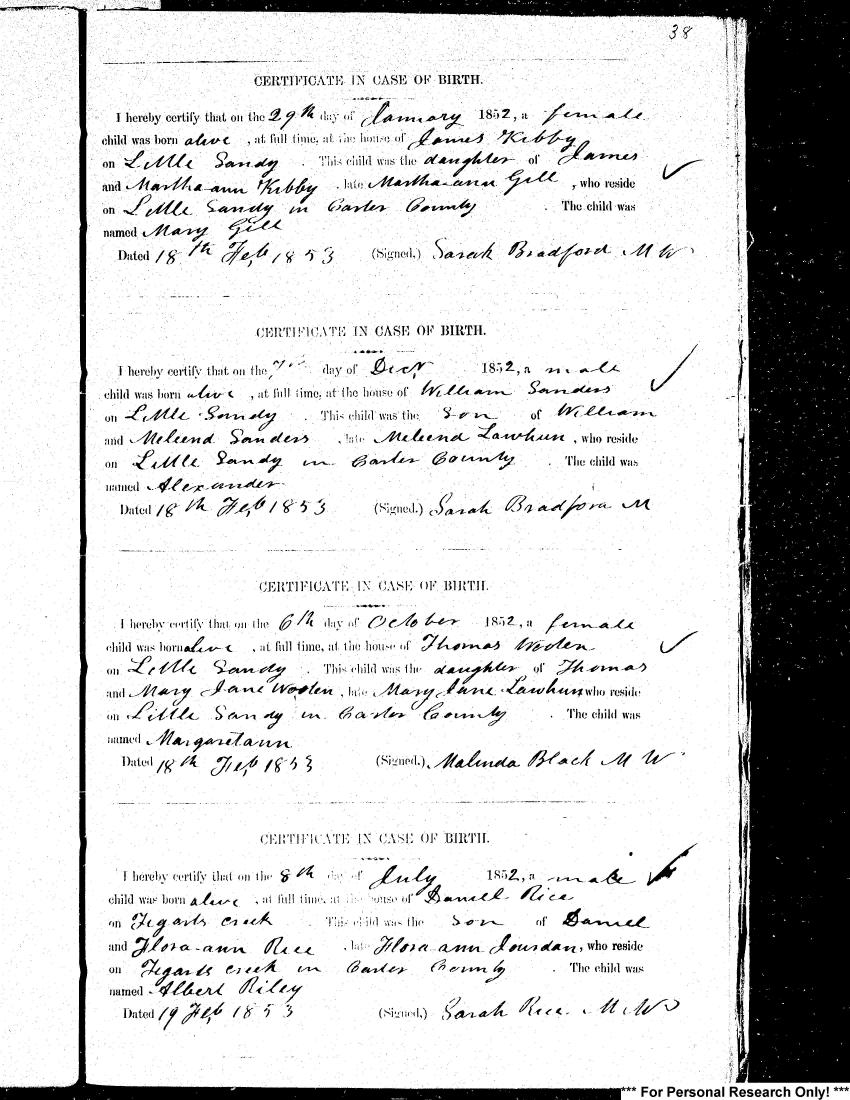 38
CERTIFICATE IN CASE OF BIRTH.
I hereby certify that on the 29th day of January 1852, a female
child was born alive , at full time, at the house of James Kibby
on Little Sandy . This child was the daughter of James
and Martha-ann Kibby , late Martha-ann Gill , who reside
on Little Sandy in Carter County . The child was
named Mary Gill
Dated 18th Feb 1853 (Signed.) Sarah Bradford M W
CERTIFICATE IN CASE OF BIRTH.
I hereby certify that on the day of Decr 1852, a male
child was born alive , at full time, at the house of William Sanders
on Little Sandy . This child was the Son of William
and Meleend Sanders , late Meleend Lawhun , who reside
on Little Sandy in Carter County . The child was
named Alexander
Dated 18th Feb 1853 (Signed.) Sarah Bradford M
CERTIFICATE IN CASE OF BIRTH.
I hereby certify that on the 6th day of October 1852, a female
child was born alive , at full time, at the house of Thomas Wooten
on Little Sandy . This child was the daughter of Thomas
and Mary Jane Wooten , late Mary Jane Lawhun who reside
on Little Sandy in Carter County . The child was
named Margaretann
Dated 18th Feb 1853 (Signed.) Malinda Black M W
CERTIFICATE IN CASE OF BIRTH.
I hereby certify that on the 8th day of July 1852, a male
child was born alive , at full time, at the house of Daniel Rice
on Tegarts creek This child was the Son of Daniel
and Flora-ann Rice , late Flora-ann Jourdan, who reside
on Tegarts creek in Carter County . The child was
named Albert Riley
Dated 19 Feb 1853 (Signed.) Sarah Rice M W
*** For Personal Research Only! ***